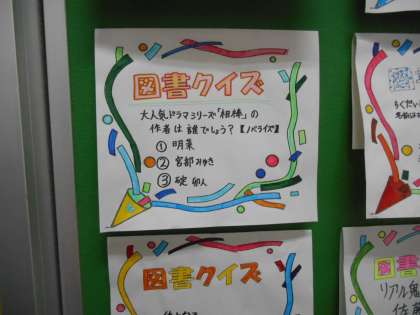 図書クイズ
大人気ドラマシリーズ「相棒」の
作者は誰でしょう?【ノベライズ】
① 明菜
② 宮部みゆき
③ 碇 卯人
図書クイズ
図書
リアル鬼